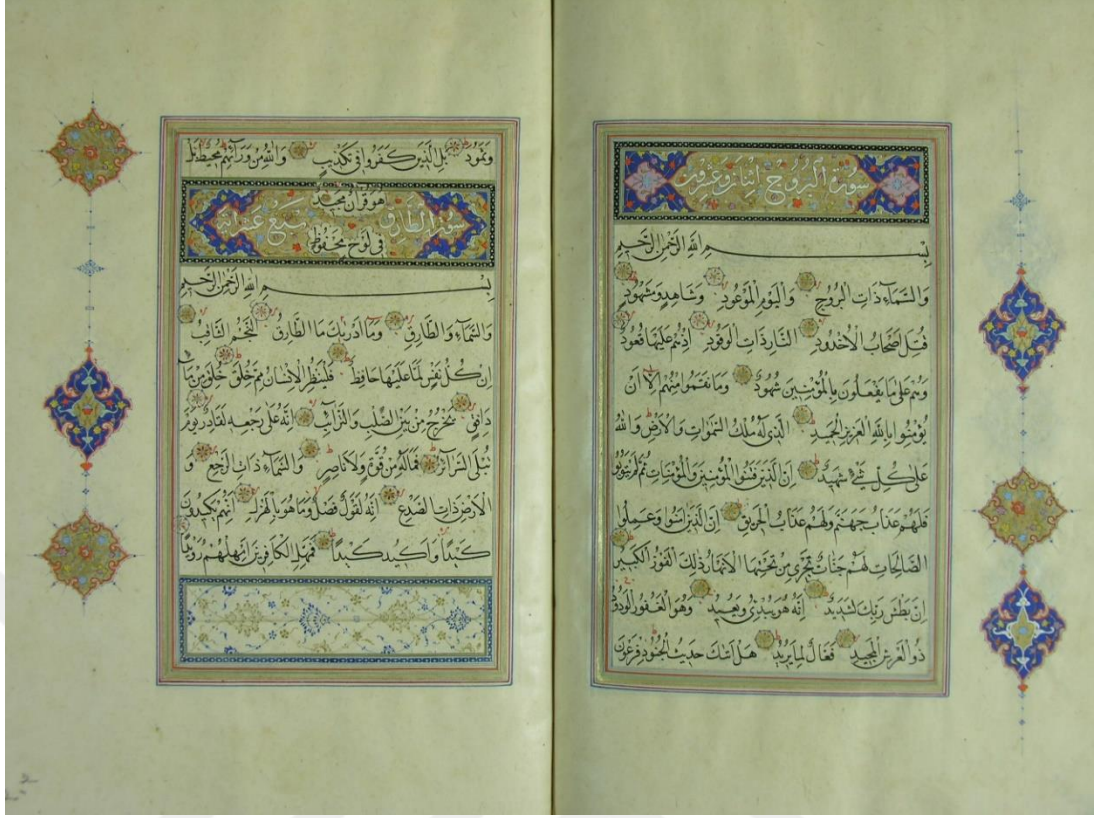 سورة البروج اثنان وعشرون
بسم الله الرحمن الرحيم
والسماء ذات البروج واليوم الموعود وشاهد ومشهود
قتل اصحاب الاخدود النار ذات الوقود اذ هم عليها قعود
وهم على ما يفعلون بالمؤمنين شهود وما نقموا منهم الا ان
يؤمنوا بالله العزيز الحميد الذي له ملك السموات والارض والله
على كل شئ شهيد ان الذين فتنوا المؤمنين والمؤمنات ثم لم يتوبوا
فلهم عذاب جهنم ولهم عذاب الحريق ان الذين امنوا وعملوا
الصالحات لهم جنات تجري من تحتها الانهار ذلك الفوز الكبير
ان بطش ربك لشديد انه هو يبدئ ويعيد وهو الغفور الودود
ذو العرش المجيد فعال لما يريد هل اتيك حديث الجنود فرعون
وثمود بل الذين كفروا في تكذيب والله من ورائهم محيط بل
هو قران مجيد
سورة الطارق سبع عشر اية
في لوح محفوظ
بسم الله الرحمن الرحيم
والسماء والطارق وما ادريك ما الطارق النجم الثاقب
ان كل نفس لما عليها حافظ فلينظر الانسان مم خلق خلق من ماء
دافق يخرج من بين الصلب والترائب انه على رجعه لقادر يوم
تبلى السرائر فما له من قوة ولا ناصر والسماء ذات الرجع و
الارض ذات الصدع انه لقول فصل وما هو بالهزل انهم يكيدون
كيدا واكيد كيدا فمهل الكافرين امهلهم رويدا